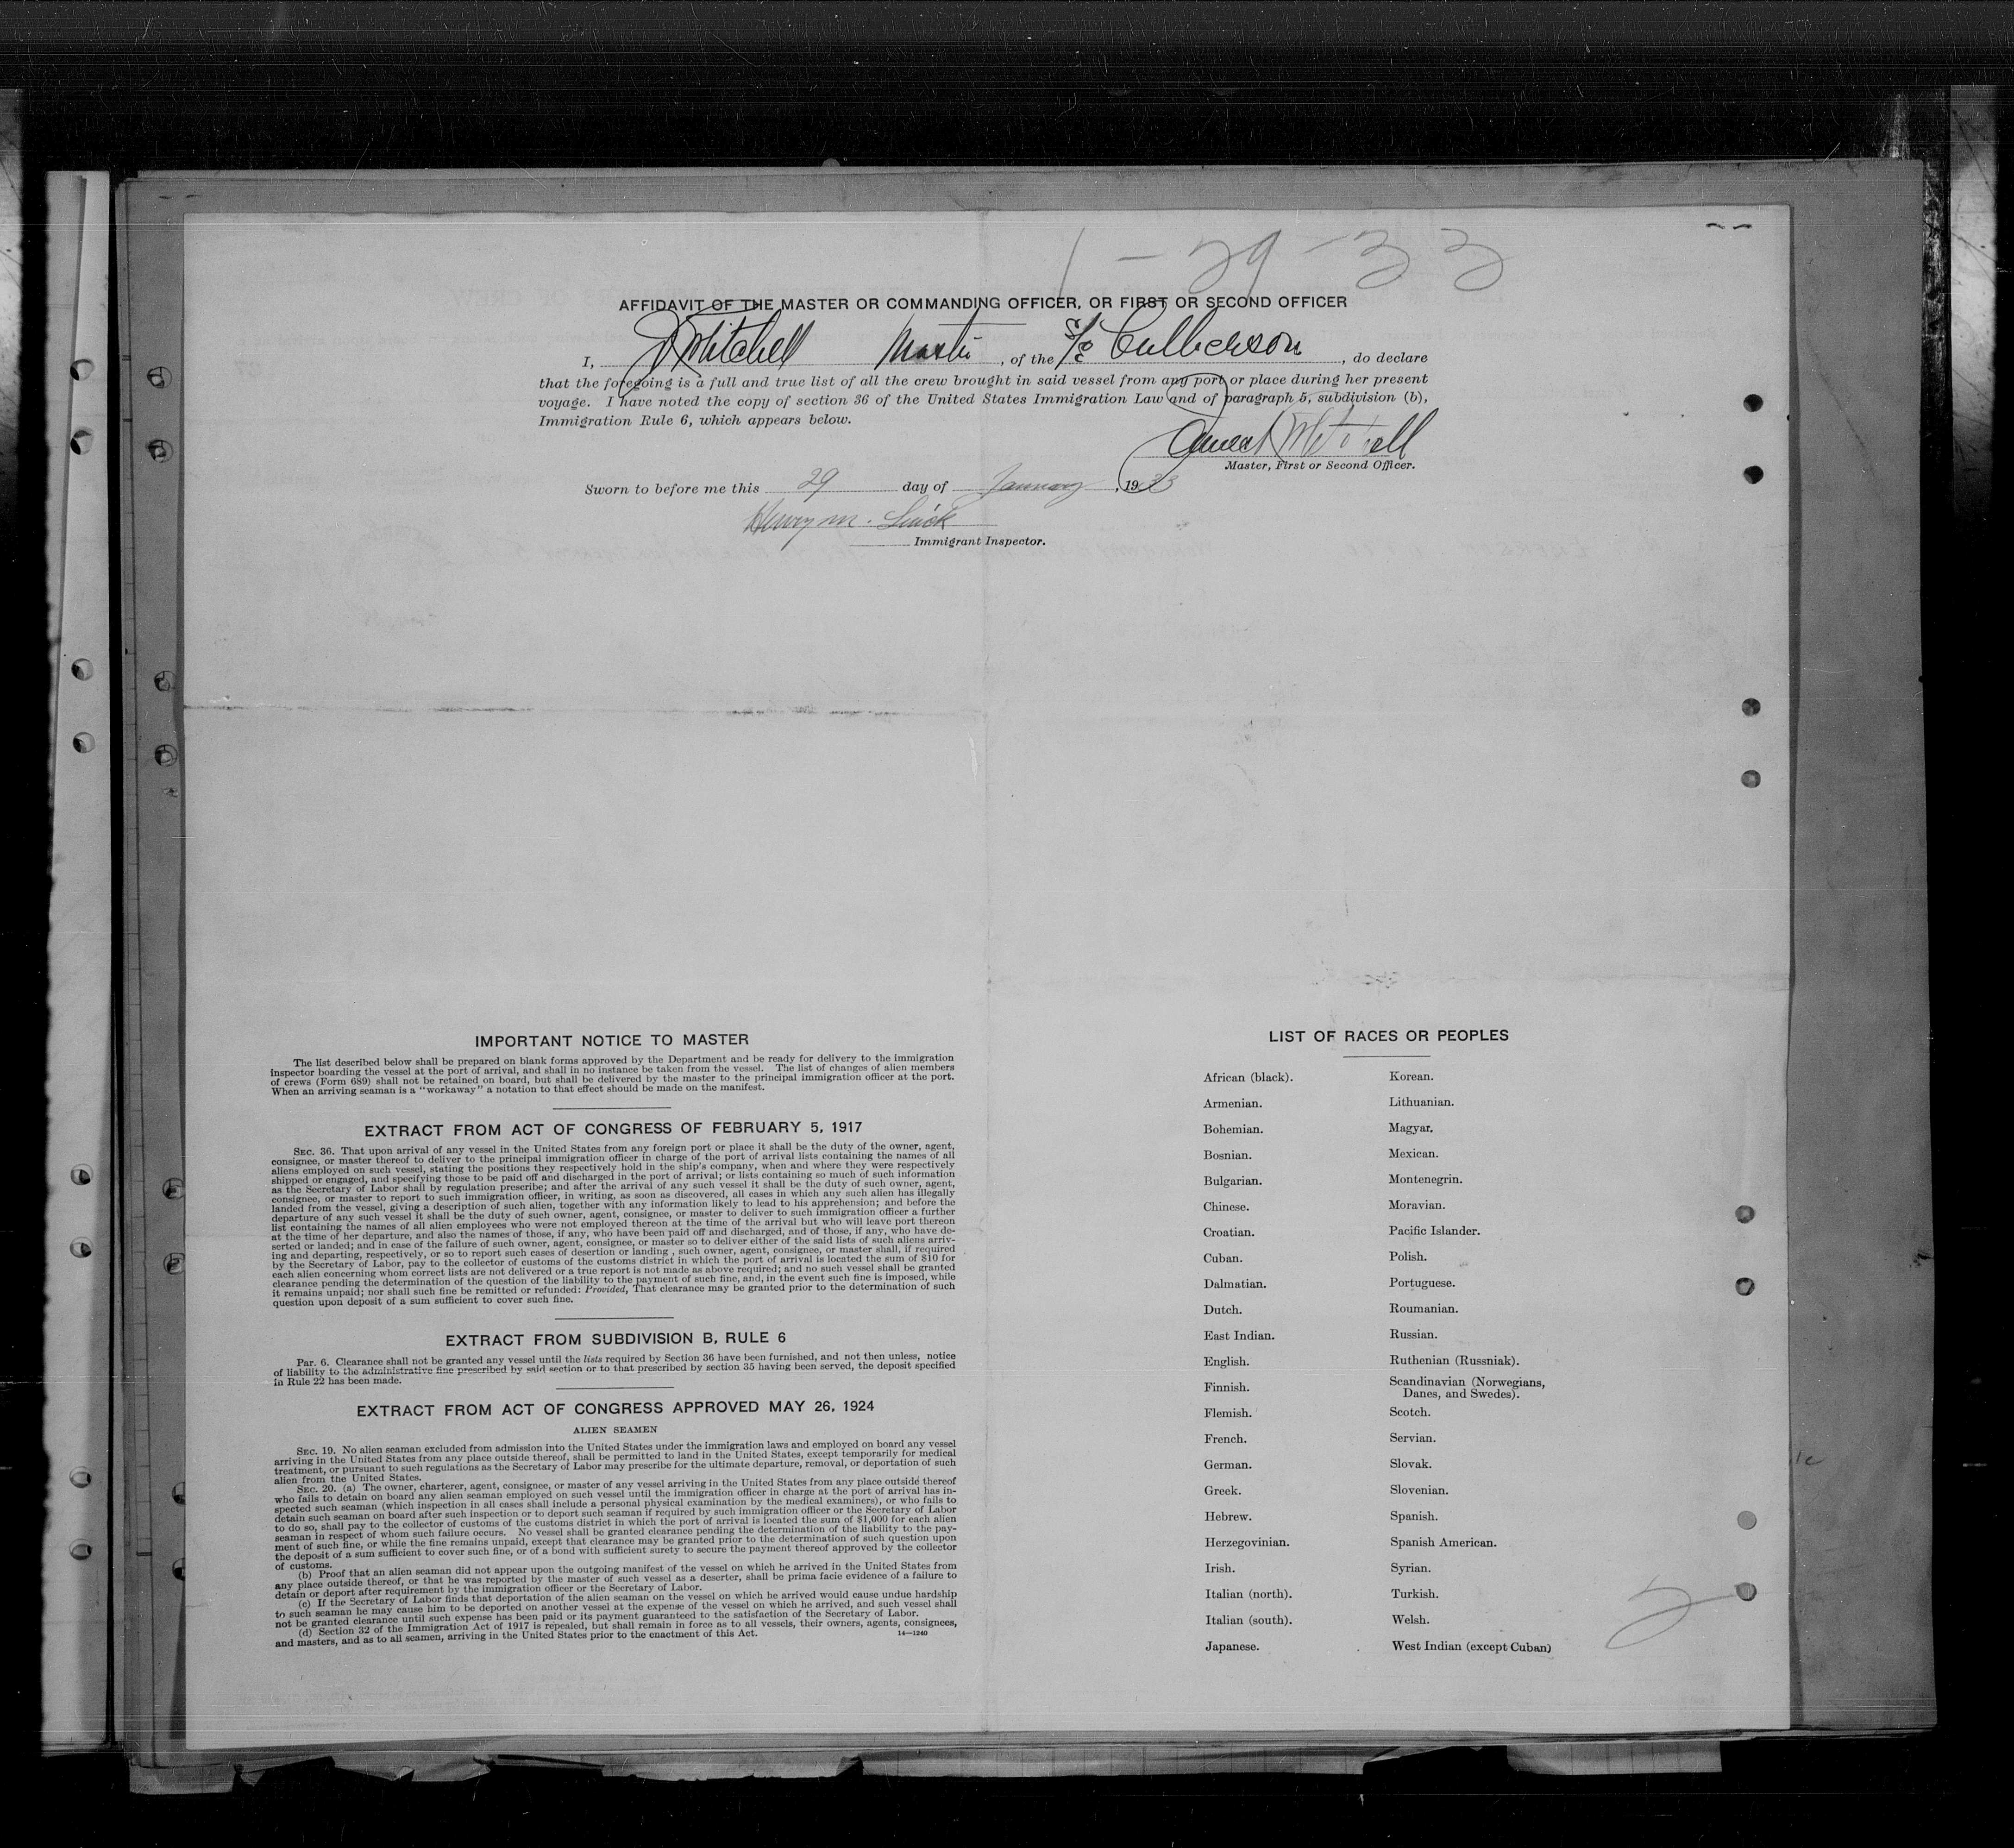 1-29-33
AFFIDAVIT OF THE MASTER OR COMMANDING OFFICER, OR FIRST OR SECOND OFFICER
I, J Mitchell Master, of the S/S Culberson, do declare
that the foregoing is a full and true list of all the crew brought in said vessel from any port or place during her present
voyage. I have noted the copy of section 36 of the United States Immigration Law and of paragraph 5, subdivision (b),
Immigration Rule 6, which appears below.
Mitchell
Master, First or Second Officer.
Sworn to before me this 29 day of January, 1933
Henry M.
Immigrant Inspector.
IMPORTANT NOTICE TO MASTER
The list described below shall be prepared on blank forms approved by the Department and be ready for delivery to the immigration
inspector boarding the vessel at the port of arrival, and shall in no instance be taken from the vessel. The list of changes of alien members
of crews (Form 689) shall not be retained on board, but shall be delivered by the master to the principal immigration officer at the port.
When an arriving seaman is a "workaway" a notation to that effect should be made on the manifest.
EXTRACT FROM ACT OF CONGRESS OF FEBRUARY 5, 1917
SEC. 36. That upon arrival of any vessel in the United States from any foreign port or place it shall be the duty of the owner, agent,
consignee, or master thereof to deliver to the principal immigration officer in charge of the port of arrival lists containing the names of all
aliens employed on such vessel, stating the positions they respectively hold in the ship's company, when and where they were respectively
shipped or engaged, and specifying those to be paid off and discharged in the port of arrival; or lists containing so much of such information
as the Secretary of Labor shall by regulation prescribe; and after the arrival of any such vessel it shall be the duty of such owner, agent,
consignee, or master to report to such immigration officer, in writing, as soon as discovered, all cases in which any such alien has illegally
landed from the vessel, giving a description of such alien, together with any information likely to lead to his apprehension; and before the
departure of any such vessel it shall be the duty of such owner, agent, consignee, or master to deliver to such immigration officer a further
list containing the names of all alien employees who were not employed thereon at the time of the arrival but who will leave port thereon
at the time of her departure, and also the names of those, if any, who have been paid off and discharged, and of those, if any, who have de-
serted or landed; and in case of the failure of such owner, agent, consignee, or master so to deliver either of the said lists of such aliens arriv-
ing and departing, respectively, or so to report such cases of desertion or landing, such owner, agent, consignee, or master shall, if required
by the Secretary of Labor, pay to the collector of customs of the customs district in which the port of arrival is located the sum of $10 for
each alien concerning whom correct lists are not delivered or a true report is not made as above required; and no such vessel shall be granted
clearance pending the determination of the question of the liability to the payment of such fine, and, in the event such fine is imposed, while
it remains unpaid; nor shall such fine be remitted or refunded: Provided, That clearance may be granted prior to the determination of such
question upon deposit of a sum sufficient to cover such fine.
EXTRACT FROM SUBDIVISION B, RULE 6
Par. 6. Clearance shall not be granted any vessel until the lists required by Section 36 have been furnished, and not then unless, notice
of liability to the administrative fine prescribed by said section or to that prescribed by section 35 having been served, the deposit specified
in Rule 22 has been made.
EXTRACT FROM ACT OF CONGRESS APPROVED MAY 26, 1924
ALIEN SEAMEN
SEC. 19. No alien seaman excluded from admission into the United States under the immigration laws and employed on board any vessel
arriving in the United States from any place outside thereof, shall be permitted to land in the United States, except temporarily for medical
treatment, or pursuant to such regulations as the Secretary of Labor may prescribe for the ultimate departure, removal, or deportation of such
alien from the United States.
SEC. 20. (a) The owner, charterer, agent, consignee, or master of any vessel arriving in the United States from any place outside thereof
who fails to detain on board any alien seaman employed on such vessel until the immigration officer in charge at the port of arrival has in-
spected such seaman (which inspection in all cases shall include a personal physical examination by the medical examiners), or who fails to
detain such seaman on board after such inspection or to deport such seaman if required by such immigration officer or the Secretary of Labor
to do so, shall pay to the collector of customs of the customs district in which the port of arrival is located the sum of $1,000 for each alien
seaman in respect of whom such failure occurs. No vessel shall be granted clearance pending the determination of the liability to the pay-
ment of such fine, or while the fine remains unpaid, except that clearance may be granted prior to the determination of such question upon
the deposit of a sum sufficient to cover such fine, or of a bond with sufficient surety to secure the payment thereof approved by the collector
of customs.
(b) Proof that an alien seaman did not appear upon the outgoing manifest of the vessel on which he arrived in the United States from
any place outside thereof, or that he was reported by the master of such vessel as a deserter, shall be prima facie evidence of a failure to
detain or deport after requirement by the immigration officer or the Secretary of Labor.
(c) If the Secretary of Labor finds that deportation of the alien seaman on the vessel on which he arrived would cause undue hardship
to such seaman he may cause him to be deported on another vessel at the expense of the vessel on which he arrived, and such vessel shall
not be granted clearance until such expense has been paid or its payment guaranteed to the satisfaction of the Secretary of Labor.
(d) Section 32 of the Immigration Act of 1917 is repealed, but shall remain in force as to all vessels, their owners, agents, consignees,
and masters, and as to all seamen, arriving in the United States prior to the enactment of this Act.
14—1240
LIST OF RACES OR PEOPLES
African (black).
Armenian.
Bohemian.
Bosnian.
Bulgarian.
Chinese.
Croatian.
Cuban.
Dalmatian.
Dutch.
East Indian.
English.
Finnish.
Flemish.
French.
German.
Greek.
Hebrew.
Herzegovinian.
Irish.
Italian (north).
Italian (south).
Japanese.
Korean.
Lithuanian.
Magyar.
Mexican.
Montenegrin.
Moravian.
Pacific Islander.
Polish.
Portuguese.
Roumanian.
Russian.
Ruthenian (Russniak).
Scandinavian (Norwegians,
Danes, and Swedes).
Scotch.
Servian.
Slovak.
Slovenian.
Spanish.
Spanish American.
Syrian.
Turkish.
Welsh.
West Indian (except Cuban)
2